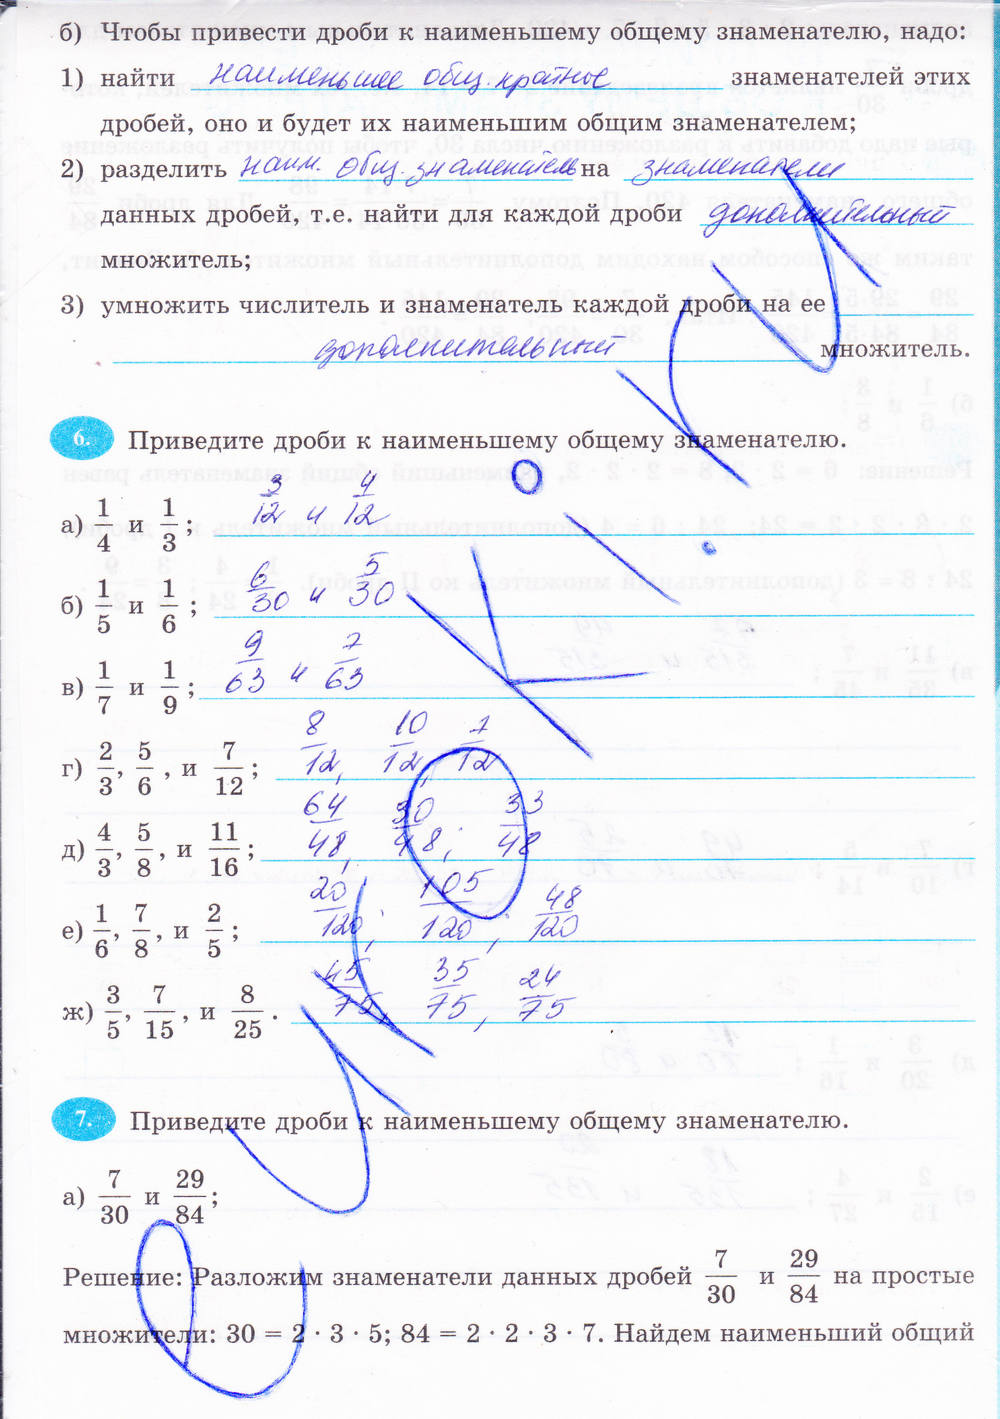 б) Чтобы привести дроби к наименьшему общему знаменателю, надо:
1) найти наименьшее общ. кратное знаменателей этих
дробей, оно и будет их наименьшим общим знаменателем;
2) разделить наим. общ. знаменатель на знаменатели
данных дробей, т.е. найти для каждой дроби дополнительный
множитель;
3) умножить числитель и знаменатель каждой дроби на ее
дополнительный множитель.
6. Приведите дроби к наименьшему общему знаменателю.
а) 1/4 и 1/3; 3/12 и 4/12
б) 1/5 и 1/6; 6/30 и 5/30
в) 1/7 и 1/9; 9/63 и 7/63
г) 2/3, 5/6, и 7/12; 8/12, 10/12, 7/12
д) 4/3, 5/8, и 11/16; 64/48, 30/48; 33/48
е) 1/6, 7/8, и 2/5; 20/120; 105/120, 48/120
ж) 3/5, 7/15, и 8/25. 45/75, 35/75, 24/75
7. Приведите дроби к наименьшему общему знаменателю.
а) 7/30 и 29/84;
Решение: Разложим знаменатели данных дробей 7/30 и 29/84 на простые
множители: 30 = 2 · 3 · 5; 84 = 2 · 2 · 3 · 7. Найдем наименьший общий